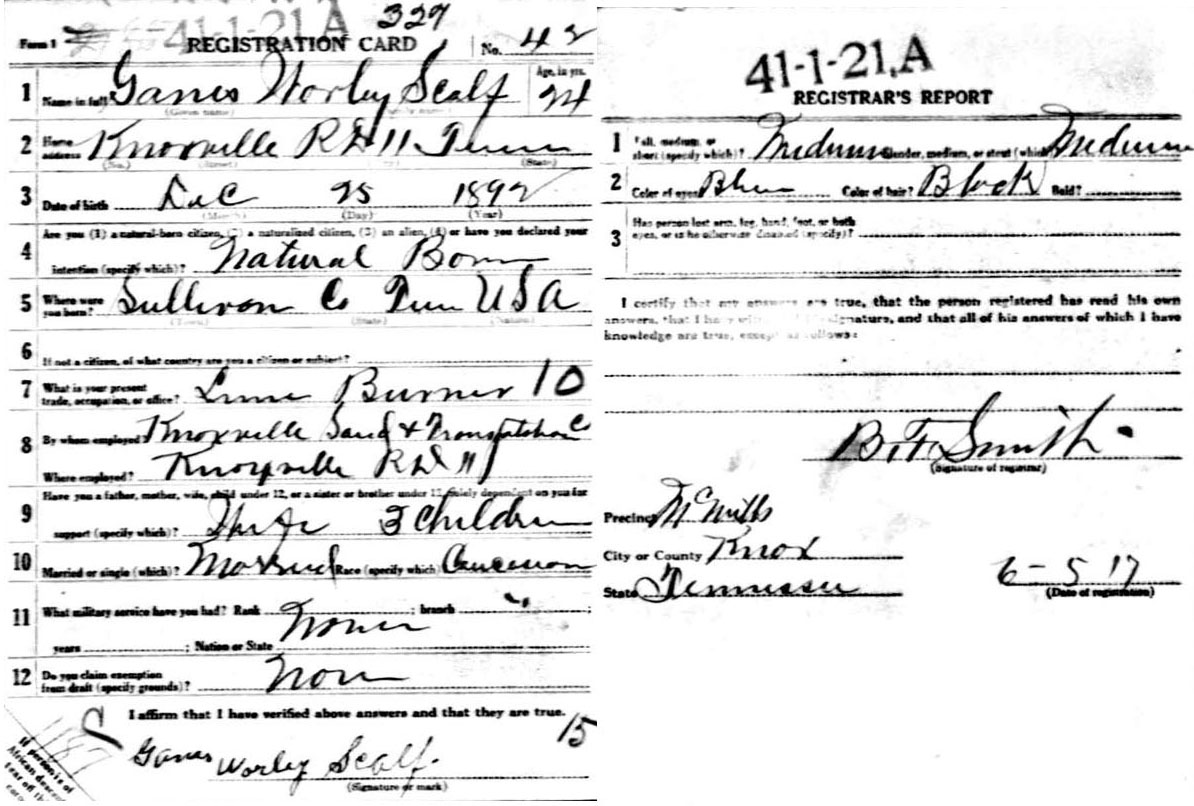 329
41-1-21 A
Form 1 REGISTRATION CARD No. 42
1 Name in full Ganes Worley Scalf Age, in yrs. 24
(Given name) (Family name)
2 Home address Knoxville RD 11 Tenn
(No.) (Street) (City) (State)
3 Date of birth Dec 25 1892
(Month) (Day) (Year)
4 Are you (1) a natural-born citizen, (2) a naturalized citizen, (3) an alien, (4) or have you declared your
intention (specify which)? Natural Born
5 Where were you born? Sullivan Co Tenn USA
(Town) (State) (Nation)
6 If not a citizen, of what country are you a citizen or subject?
7 What is your present trade, occupation, or office? Lime Burner 10
8 By whom employed Knoxville Sand & Transpatation Co
Where employed? Knoxville RD 11
9 Have you a father, mother, wife, child under 12, or a sister or brother under 12, solely dependent on you for
support (specify which)? Wife 3 Children
10 Married or single (which)? Married Race (specify which) Caucasian
11 What military service have you had? Rank ; branch
None
years ; Nation or State
12 Do you claim exemption from draft (specify grounds)? Non
I affirm that I have verified above answers and that they are true.
15
Ganes Worley Scalf
(Signature or mark)
If person is of
African descent
tear off this
41-1-21, A
REGISTRAR'S REPORT
1 Tall, medium, or short (specify which)? Medium Slender, medium, or stout (which) Medium
2 Color of eyes Blue Color of hair? Black Bald?
3 Has person lost arm, leg, hand, foot, or both
eyes, or is he otherwise disabled (specify)?
I certify that my answers are true, that the person registered has read his own
answers, that I have witnessed his signature, and that all of his answers of which I have
knowledge are true, except as follows:
B. F. Smith
(Signature of registrar)
Precinct McMills
City or County Knox
State Tennessee
6-5 17
(Date of registration)